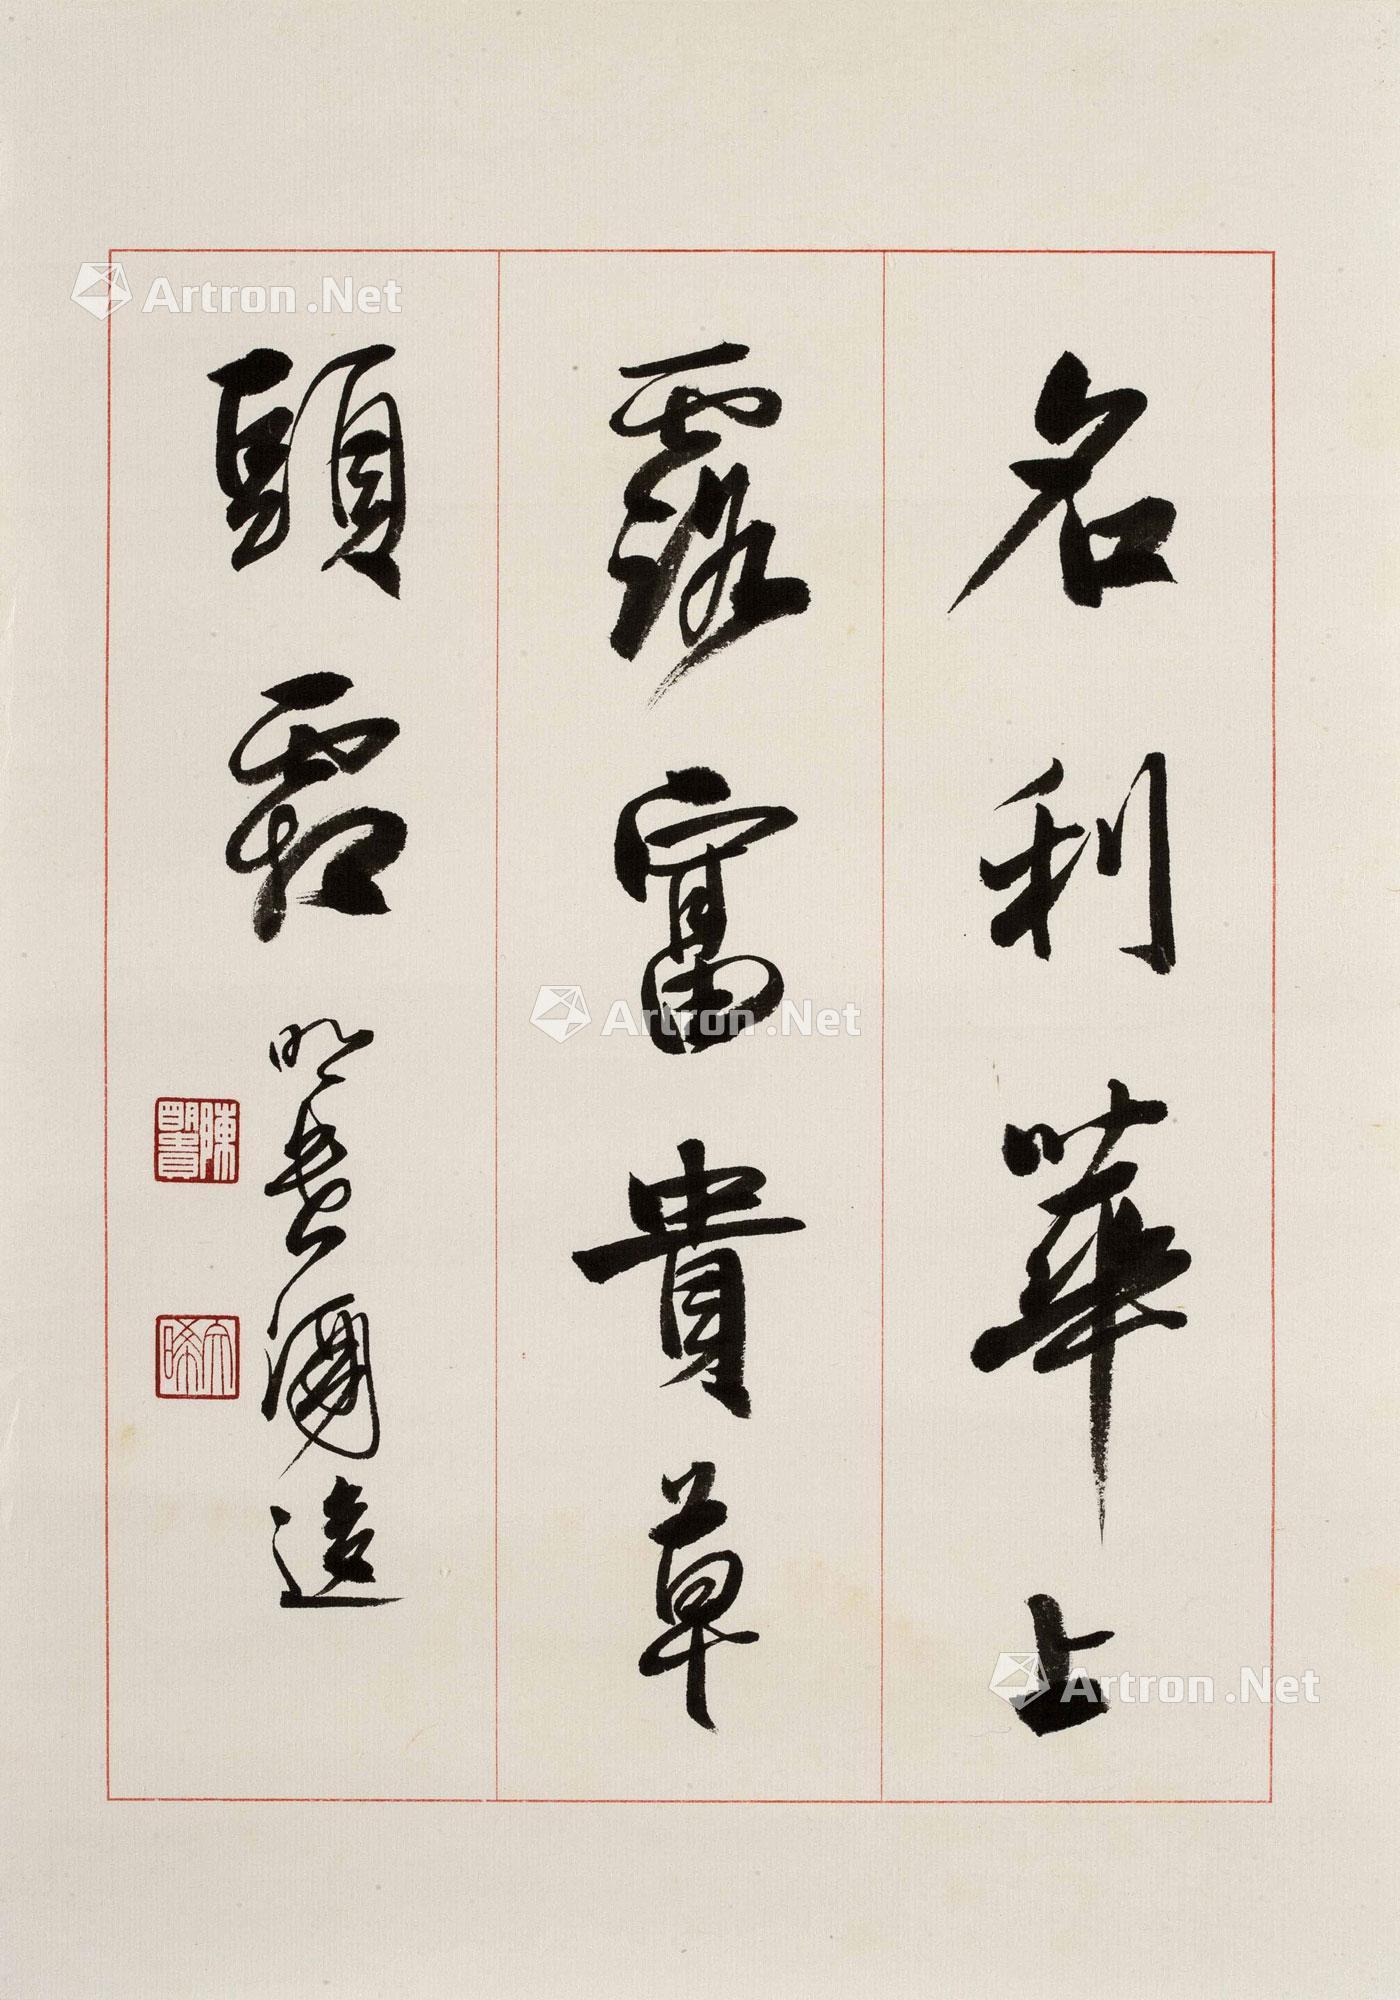 名利華上
露富貴草
頭霜
明貴
陳明貴
Artron.Net
Artron.Net
Artron.Net